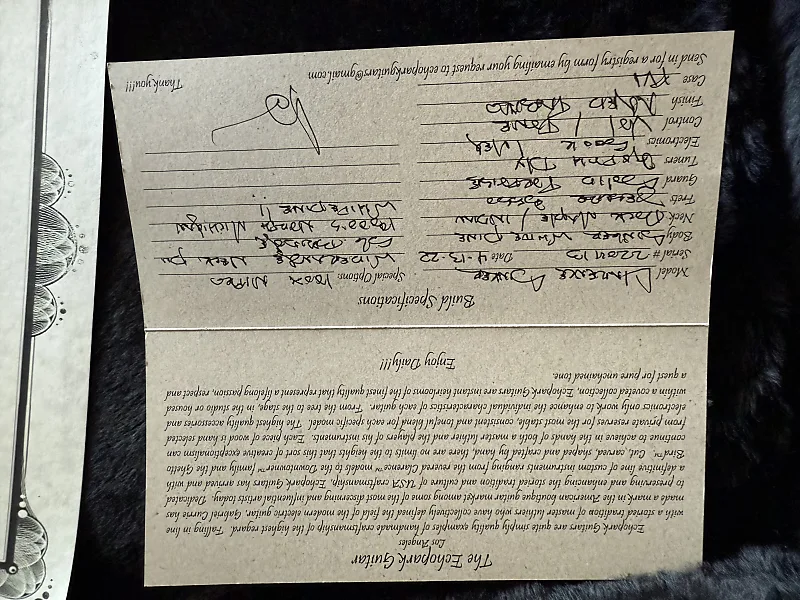 The Echopark Guitar
Los Angeles
Echopark Guitars are quite simply quality examples of handmade craftsmanship of the highest regard. Falling in line
with a storied tradition of master luthiers who have collectively defined the field of the modern electric guitar, Gabriel Currie has
made a mark in the American boutique guitar market among some of the most discerning and influential artists today. Dedicated
to preserving and enhancing the storied tradition and culture of USA craftsmanship, Echopark Guitars has arrived and with
a definitive line of custom instruments ranging from the revered Clarence™ models to the Downtowner™ family and the Ghetto
Bird™. Cut, carved, shaped and created by hand, there are no limits to the heights that this sort of creative exceptionalism can
continue to achieve in the hands of both a master luthier and the players of his instruments. Each piece of wood is hand selected
from private reserves for the most stable, consistent and toneful blend for each specific model. The highest quality accessories and
electronics only work to enhance the individual characteristics of each guitar. From the tree to the stage, in the studio or housed
within a coveted collection, Echopark Guitars are instant heirlooms of the finest quality that represent a lifelong passion, respect and
a quest for pure unchained tone.
Enjoy Daily!!!
Build Specifications
Model Clarence
Serial # Date 4-13-22
Body White Pine
Neck Maple /
Frets
Guard
Tuners
Electronics
Control Vol / Tone
Finish
Case
Special Options: 100% Nitro
Widerange Neck PU
1800's North Michigan
White Pine !!
Send in for a registry form by emailing your request to echoparkguitars@gmail.com
Thank you!!!